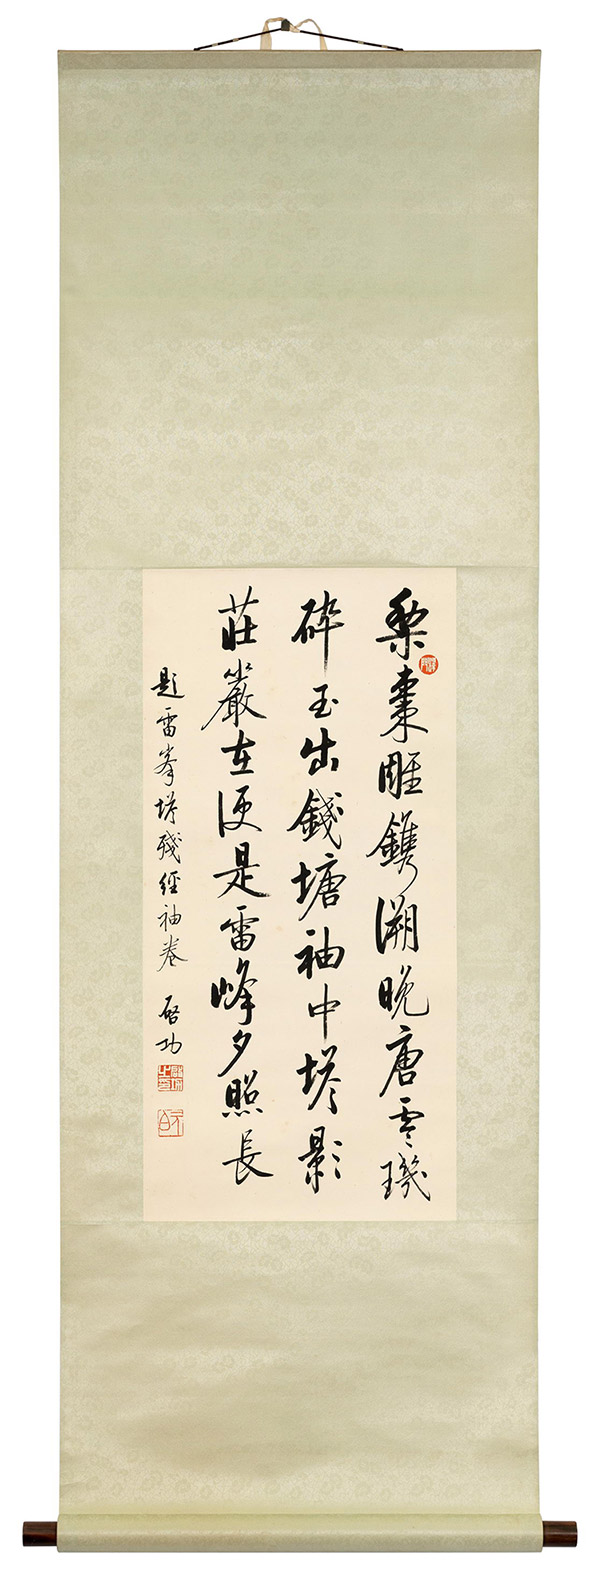 梨棗雕鐫溯晚唐零璣
碎玉出錢塘袖中塔影
莊嚴在便是雷峰夕照長
題雷峯塔殘經袖卷 啓功